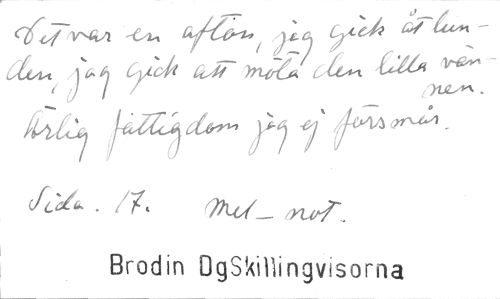 Det var en afton, jag gick åt lun-
den, jag gick att möta den lilla vän-
nen.
Ärlig fattigdom jag ej försmår.
Sida. 17. Mel-not.
Brodin DgSkillingvisorna